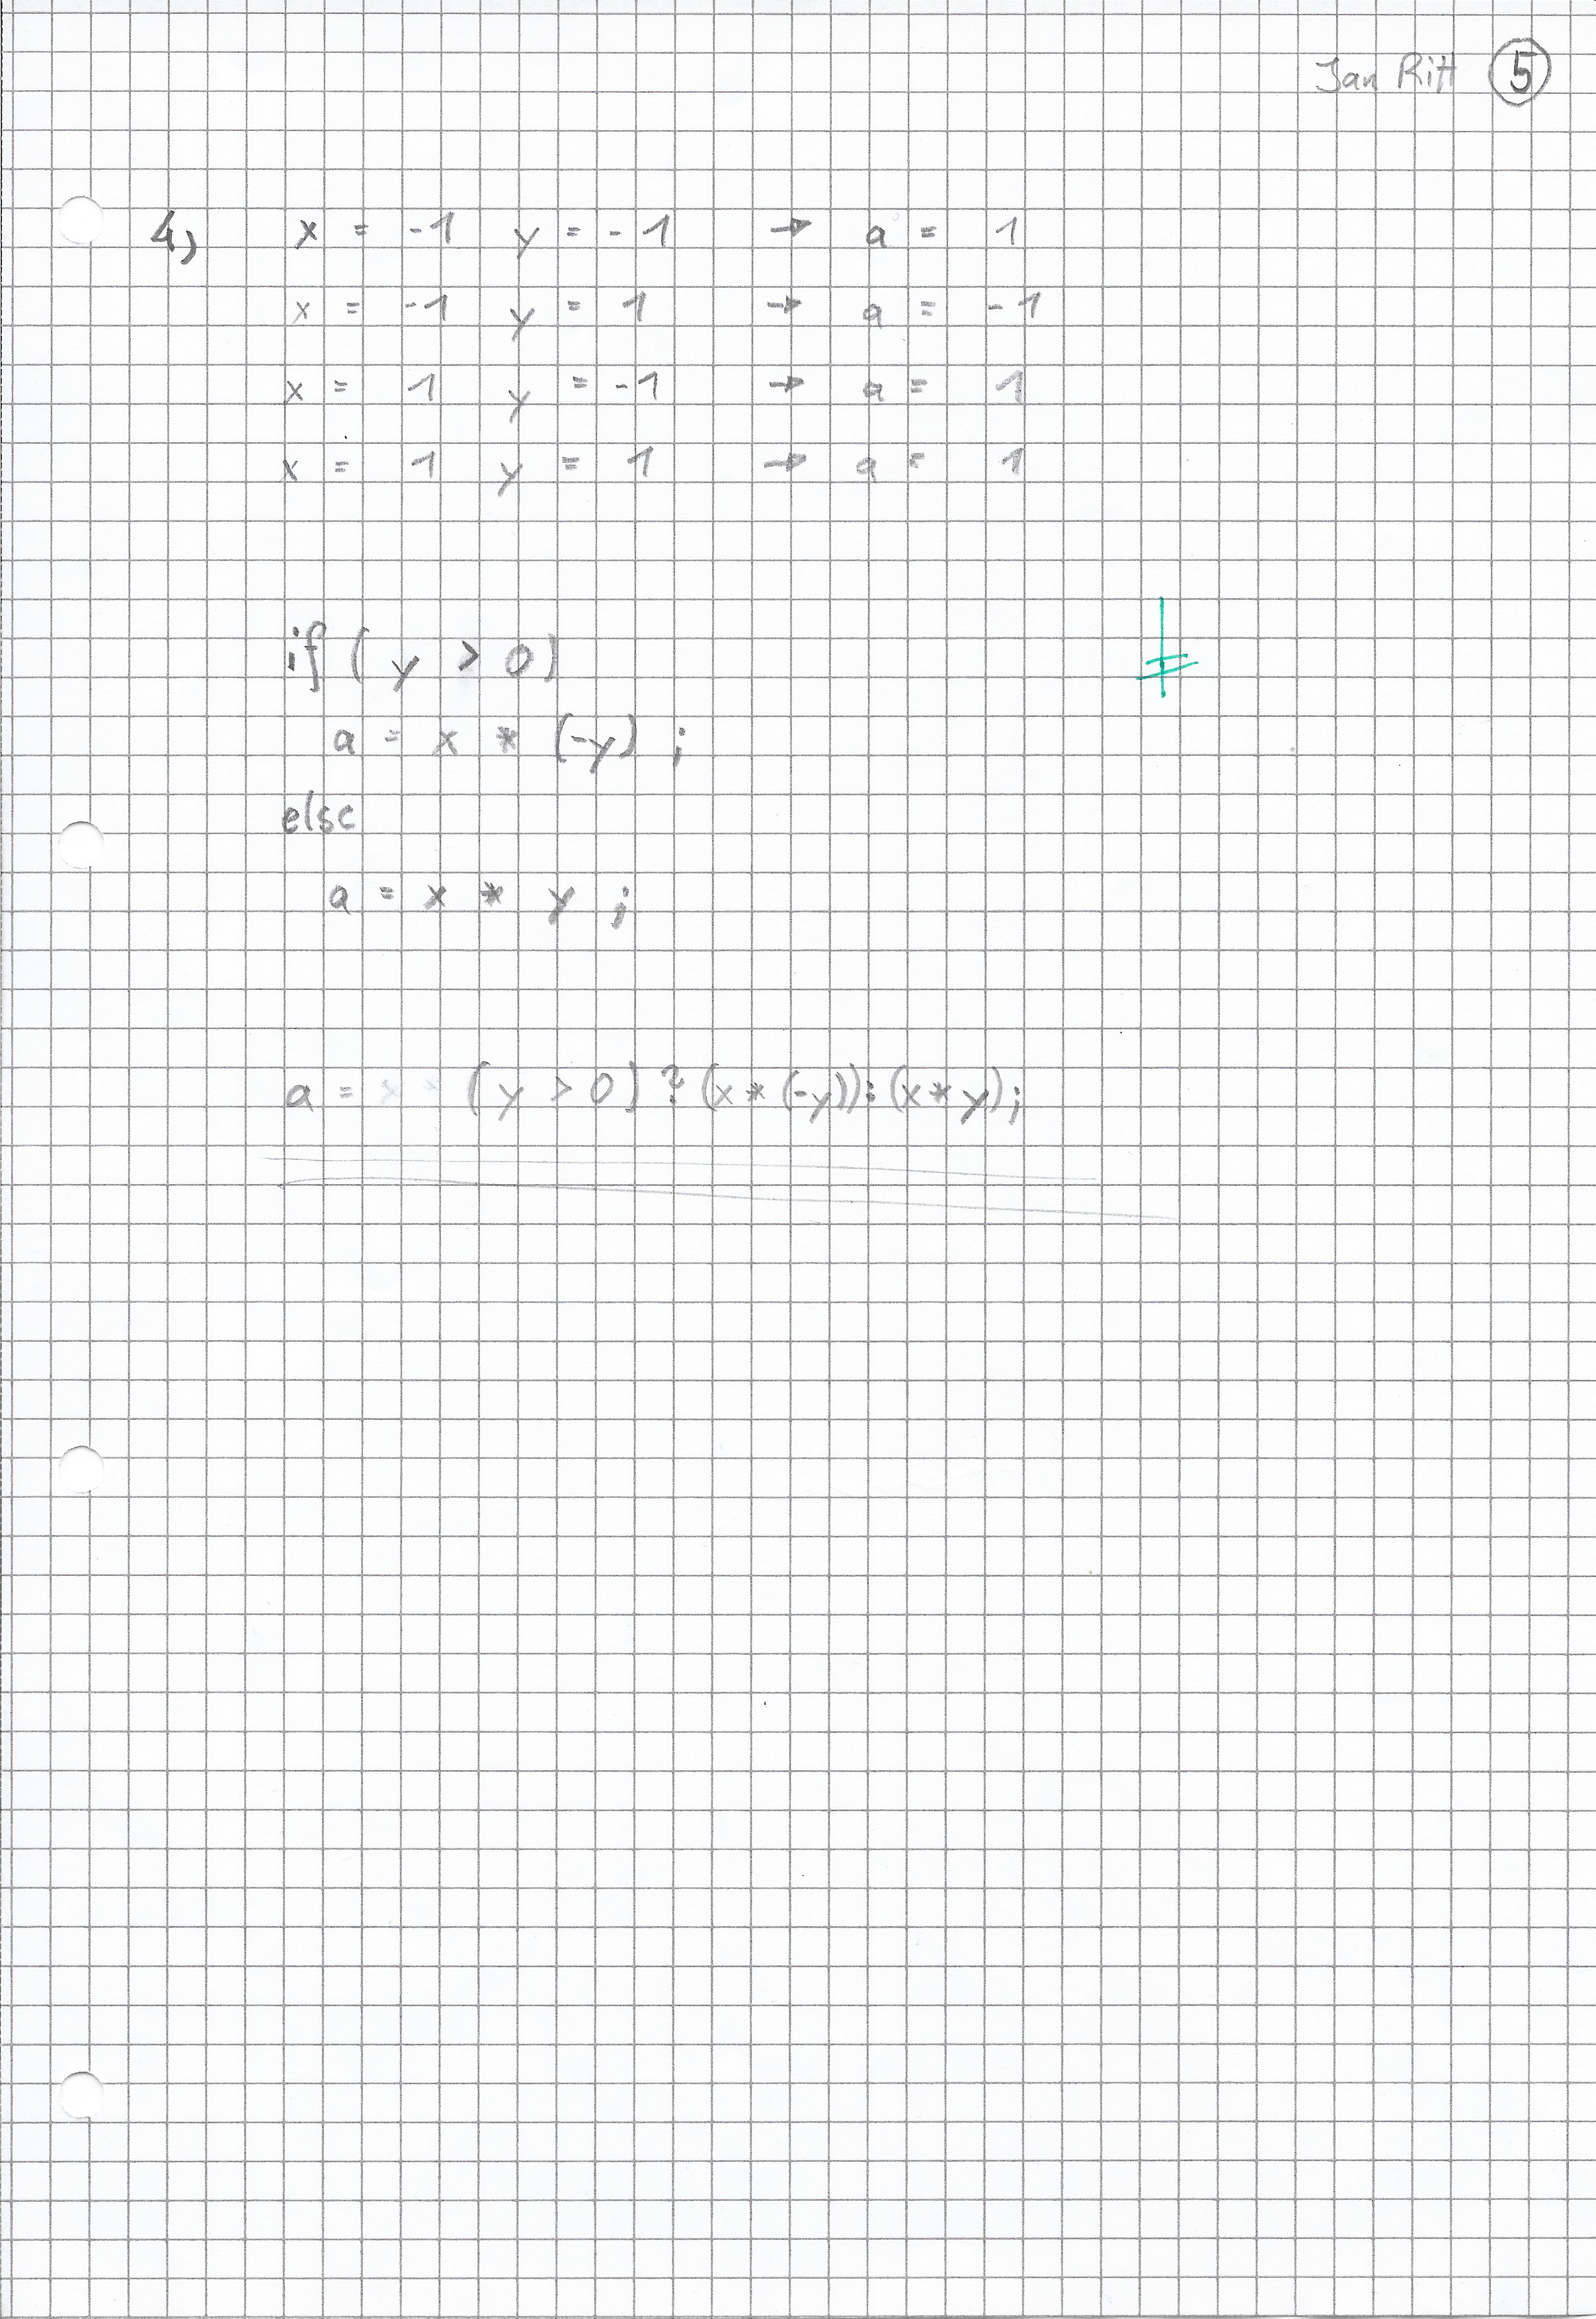 Jan Ritt 5
4) x = -1 y = -1 → a = 1
x = -1 y = 1 → a = -1
x = 1 y = -1 → a = 1
x = 1 y = 1 → a = 1
if ( y > 0 )
a = x * (-y) ;
else
a = x * y ;
a = (y > 0) ? (x * (-y)) : (x * y);